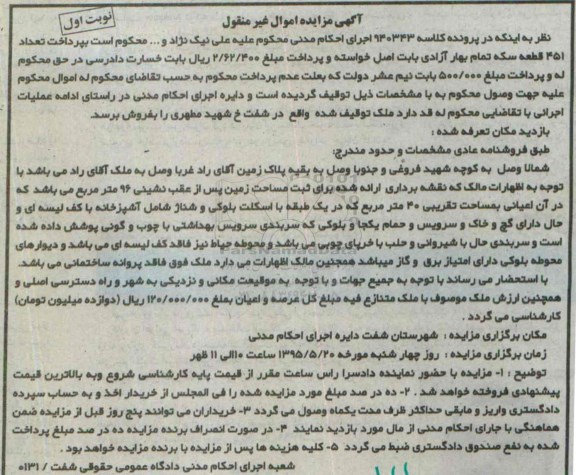 آگهی مزایده اموال غیر منقول
نوبت اول
نظر به اینکه در پرونده کلاسه ۹۴۰۳۴۳ اجرای احکام مدنی محکوم علیه علی نیک نژاد و ... محکوم است بپرداخت تعداد
۴۵۱ قطعه سکه تمام بهار آزادی بابت اصل خواسته و پرداخت مبلغ ۲/۶۲/۴۰۰ ریال بابت خسارت دادرسی در حق محکوم
له و پرداخت مبلغ ۵۰۰/۰۰۰ بابت نیم عشر دولت که بعلت عدم پرداخت محکوم به حسب تقاضای محکوم له اموال محکوم
علیه جهت وصول محکوم به با مشخصات ذیل توقیف گردیده است و دایره اجرای احکام مدنی در راستای ادامه عملیات
اجرائی با تقاضایی محکوم له قد دارد ملک توقیف شده واقع در شفت خ شهید مطهری را بفروش برسد.
بازدید مکان تعرفه شده :
طبق فروشنامه عادی مشخصات و حدود مندرج:
شمالا وصل به کوچه شهید فروغی و جنوبا وصل به بقیه پلاک زمین آقای راد غربا وصل به ملک آقای راد می باشد با
توجه به اظهارات مالک که نقشه برداری ارائه شده برای ثبت مساحت زمین پس از عقب نشینی ۹۶ متر مربع می باشد که
در آن اعیانی بمساحت تقریبی ۴۰ متر مربع که در یک طبقه با اسکلت بلوکی و شناژ شامل آشپزخانه با کف لیسه ای و
حال دارای گچ و خاک و سرویس و حمام یکجا و بلوکی که سربندی سرویس بهداشتی با چوب و گونی پوشش داده شده
است و سربندی حال با شیروانی و حلب با خرپای چوبی می باشد و محوطه حیاط نیز فاقد کف لیسه ای می باشد و دیوارهای
محوطه بلوکی دارای امتیاز برق و گاز میباشد همچنین مالک اظهارات می دارد ملک فوق فاقد پروانه ساختمانی می باشد.
با استحضار می رساند با توجه به جمیع جهات و با توجه به موقعیت مکانی و نزدیکی به شهر و راه دسترسی اصلی و
همچنین ارزش ملک موصوف با ملک متنازع فیه مبلغ کل عرصه و اعیان بملغ ۱۲۰/۰۰۰/۰۰۰ ریال (دوازده میلیون تومان)
کارشناسی می گردد .
مکان برگزاری مزایده : شهرستان شفت دایره اجرای احکام مدنی
زمان برگزاری مزایده : روز چهار شنبه مورخه ۱۳۹۵/۵/۲۰ ساعت ۱۰الی ۱۱ ظهر
توضیح : ۱- مزایده با حضور نماینده دادسرا راس ساعت مقرر از قیمت پایه کارشناسی شروع وبه بالاترین قیمت
پیشنهادی فروخته خواهد شد . ۲- ده در صد مبلغ مورد مزایده شده را فی المجلس از خریدار اخذ و به حساب سپرده
دادگستری واریز و مابقی حداکثر ظرف مدت یکماه وصول می گردد ۳- خریداران می توانند پنج روز قبل از مزایده ضمن
هماهنگی با جارای احکام مدنی از مال مورد بازدید نمایند ۴- در صورت انصراف برنده مزایده ده در صد مبلغ پرداخت
شده به نفع صندوق دادگستری ضبط می گردد ۵- کلیه هزینه ها پس از مزایده با برنده مزایده خواهد بود .
شعبه اجرای احکام مدنی دادگاه عمومی حقوقی شفت / ۰۱۳۱